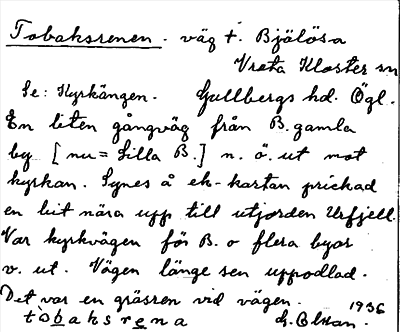 Tobaksrenen. väg t. Bjälösa
Vreta Kloster sn
Se: Kyrkängen. Gullbergs hd. Ögl.
En liten gångväg från B. gamla
by [nu = Lilla B.] n. ö. ut mot
kyrkan. Synes å ek-kartan prickad
en bit nära upp till utjorden Urfjell.
Var kyrkvägen för B. o flera byar
v. ut. Vägen länge sen uppodlad.
Det var en gräsren vid vägen. 1936
tobaksrena